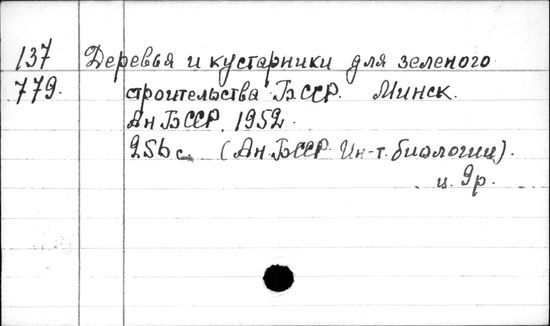 137 Деревья и кустарники для зеленого
779. строительства БССР. Минск.
Ан БССР. 1952.
256 с. (Ан. БССР. Ин-т. биологии).
ц. 9р.